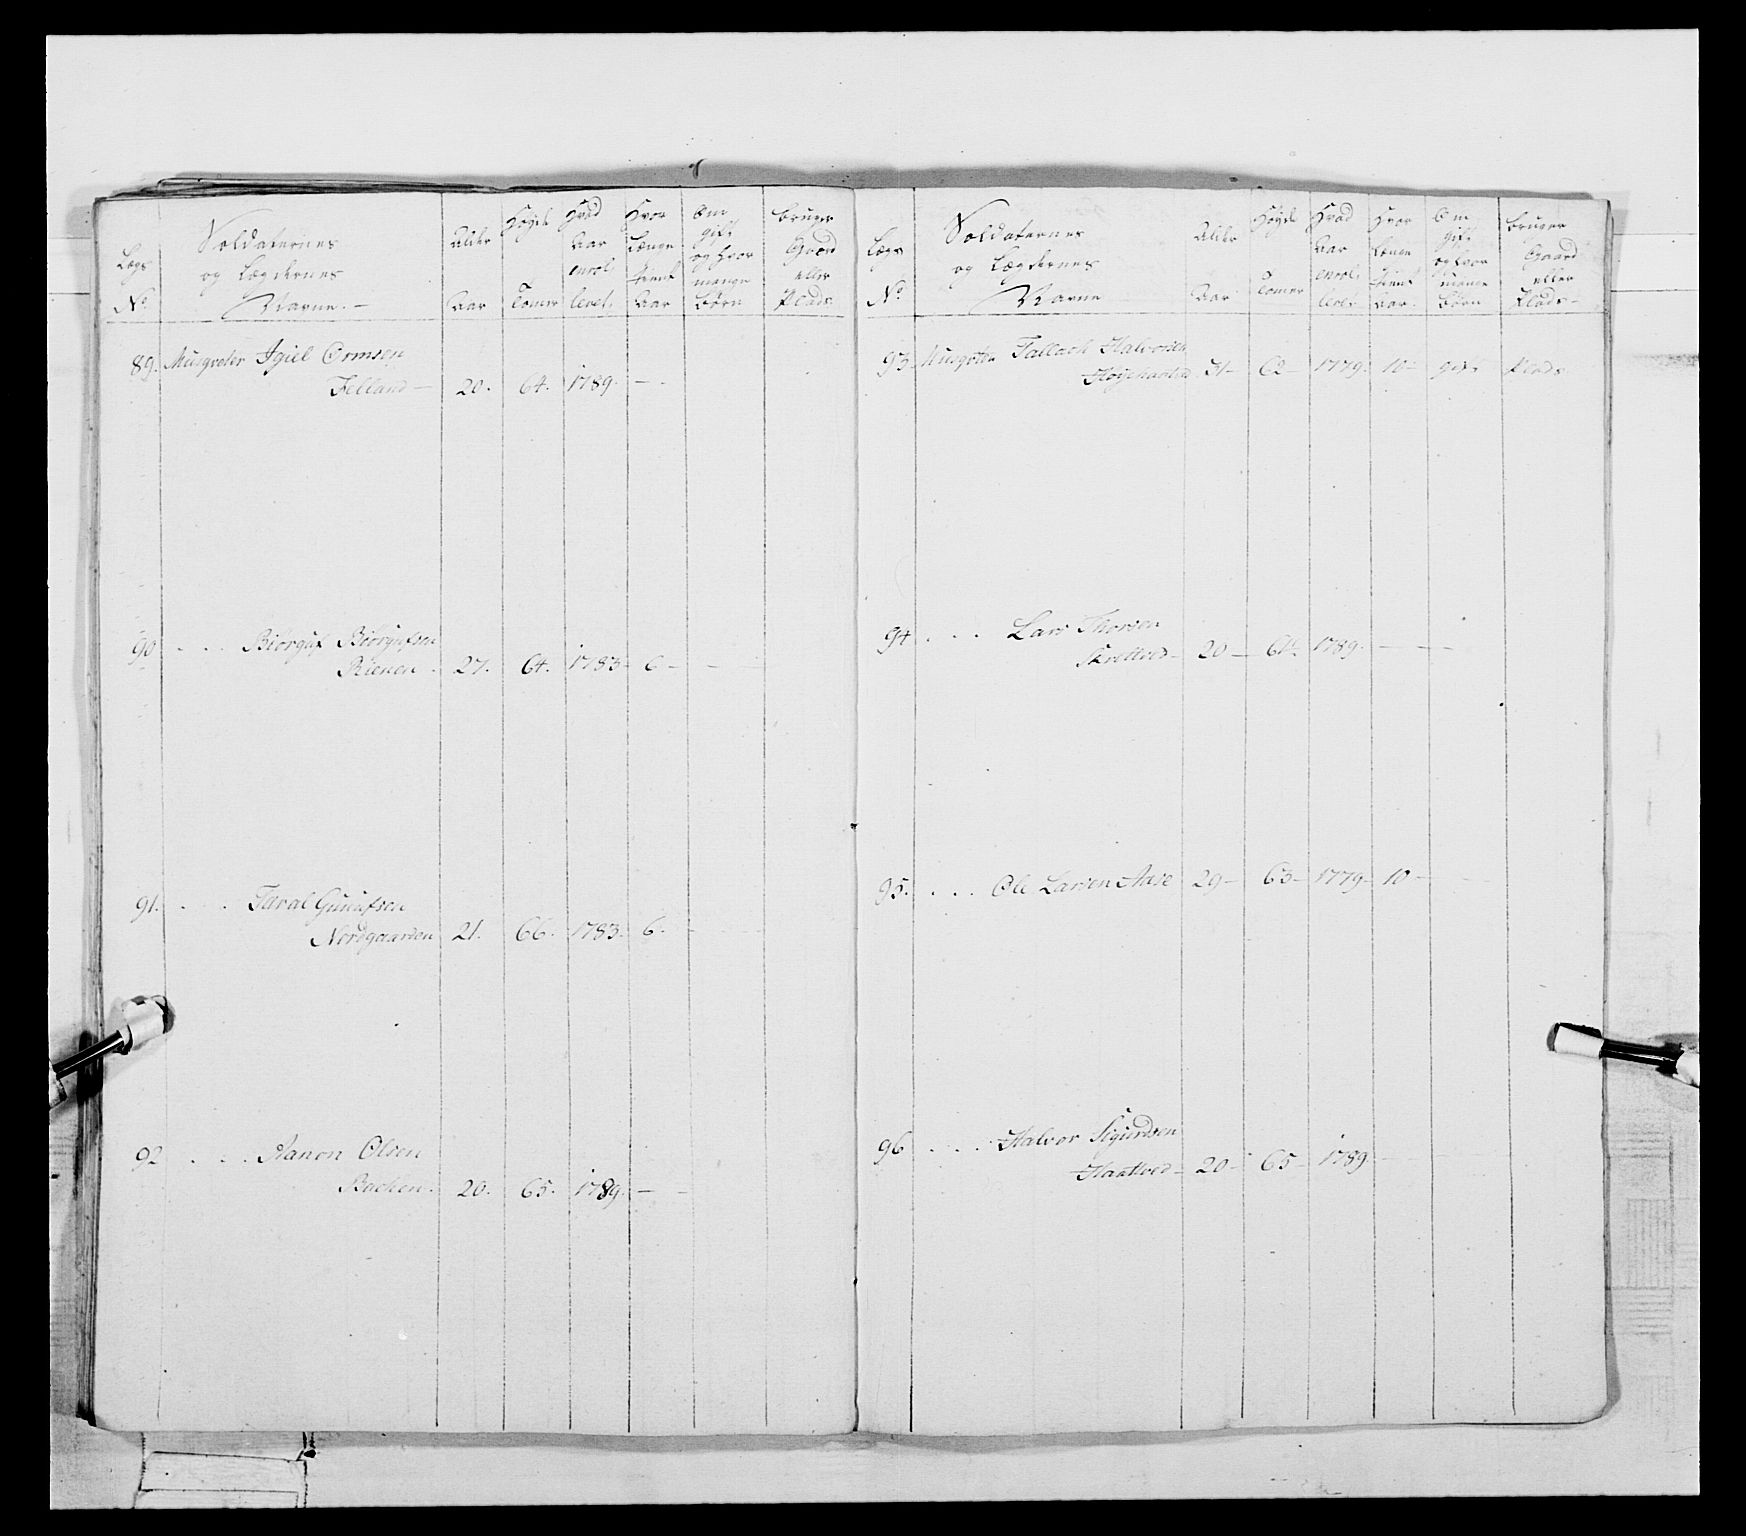 Lægs
No.
Soldaternes
og Lægdernes
Navne. -
Alder
Aar
Høyde
Tomer
Hvad
Aar
enrol,
leret,
Hvor
Længe
tient
Aar
Om
gift
og hvor
mange
børn
bruger
Gaard
eller
Plads
89. Musqveter Agiel Ormsen
Felland - 20. 64. 1789. - -
90 - - - Biørguf Biørgufsen
Rienen. 27. 64. 1783- 6 - -
91. - - Taral Gunufsen
Nordgaarden 21. 66. 1783. 6.
92 - - - Aanon Olsen
Backen. 20. 65. 1789. - -
Lægs
No.
Soldaternes
og Lægdernes
Navne
Alder
Aar
Høyde
Tomer
Hvad
Aar
enrol,
leret
Hvor
Længe
tient
Aar.
Om
gift
og hvor
mange
børn
bruger
Gaard
eller
Plads -
93. Musqveter Tallach Halvorsen
31- 62- 1779. 10- gift Plads
94 - - - Lars Thorsen
20 - 64. 1789. - - -
95. - - - Ole Larsen Aase 29- 63- 1779- 10 -
96 - - - Halvor Sigurdsen
Haatved - 20- 65- 1789. -